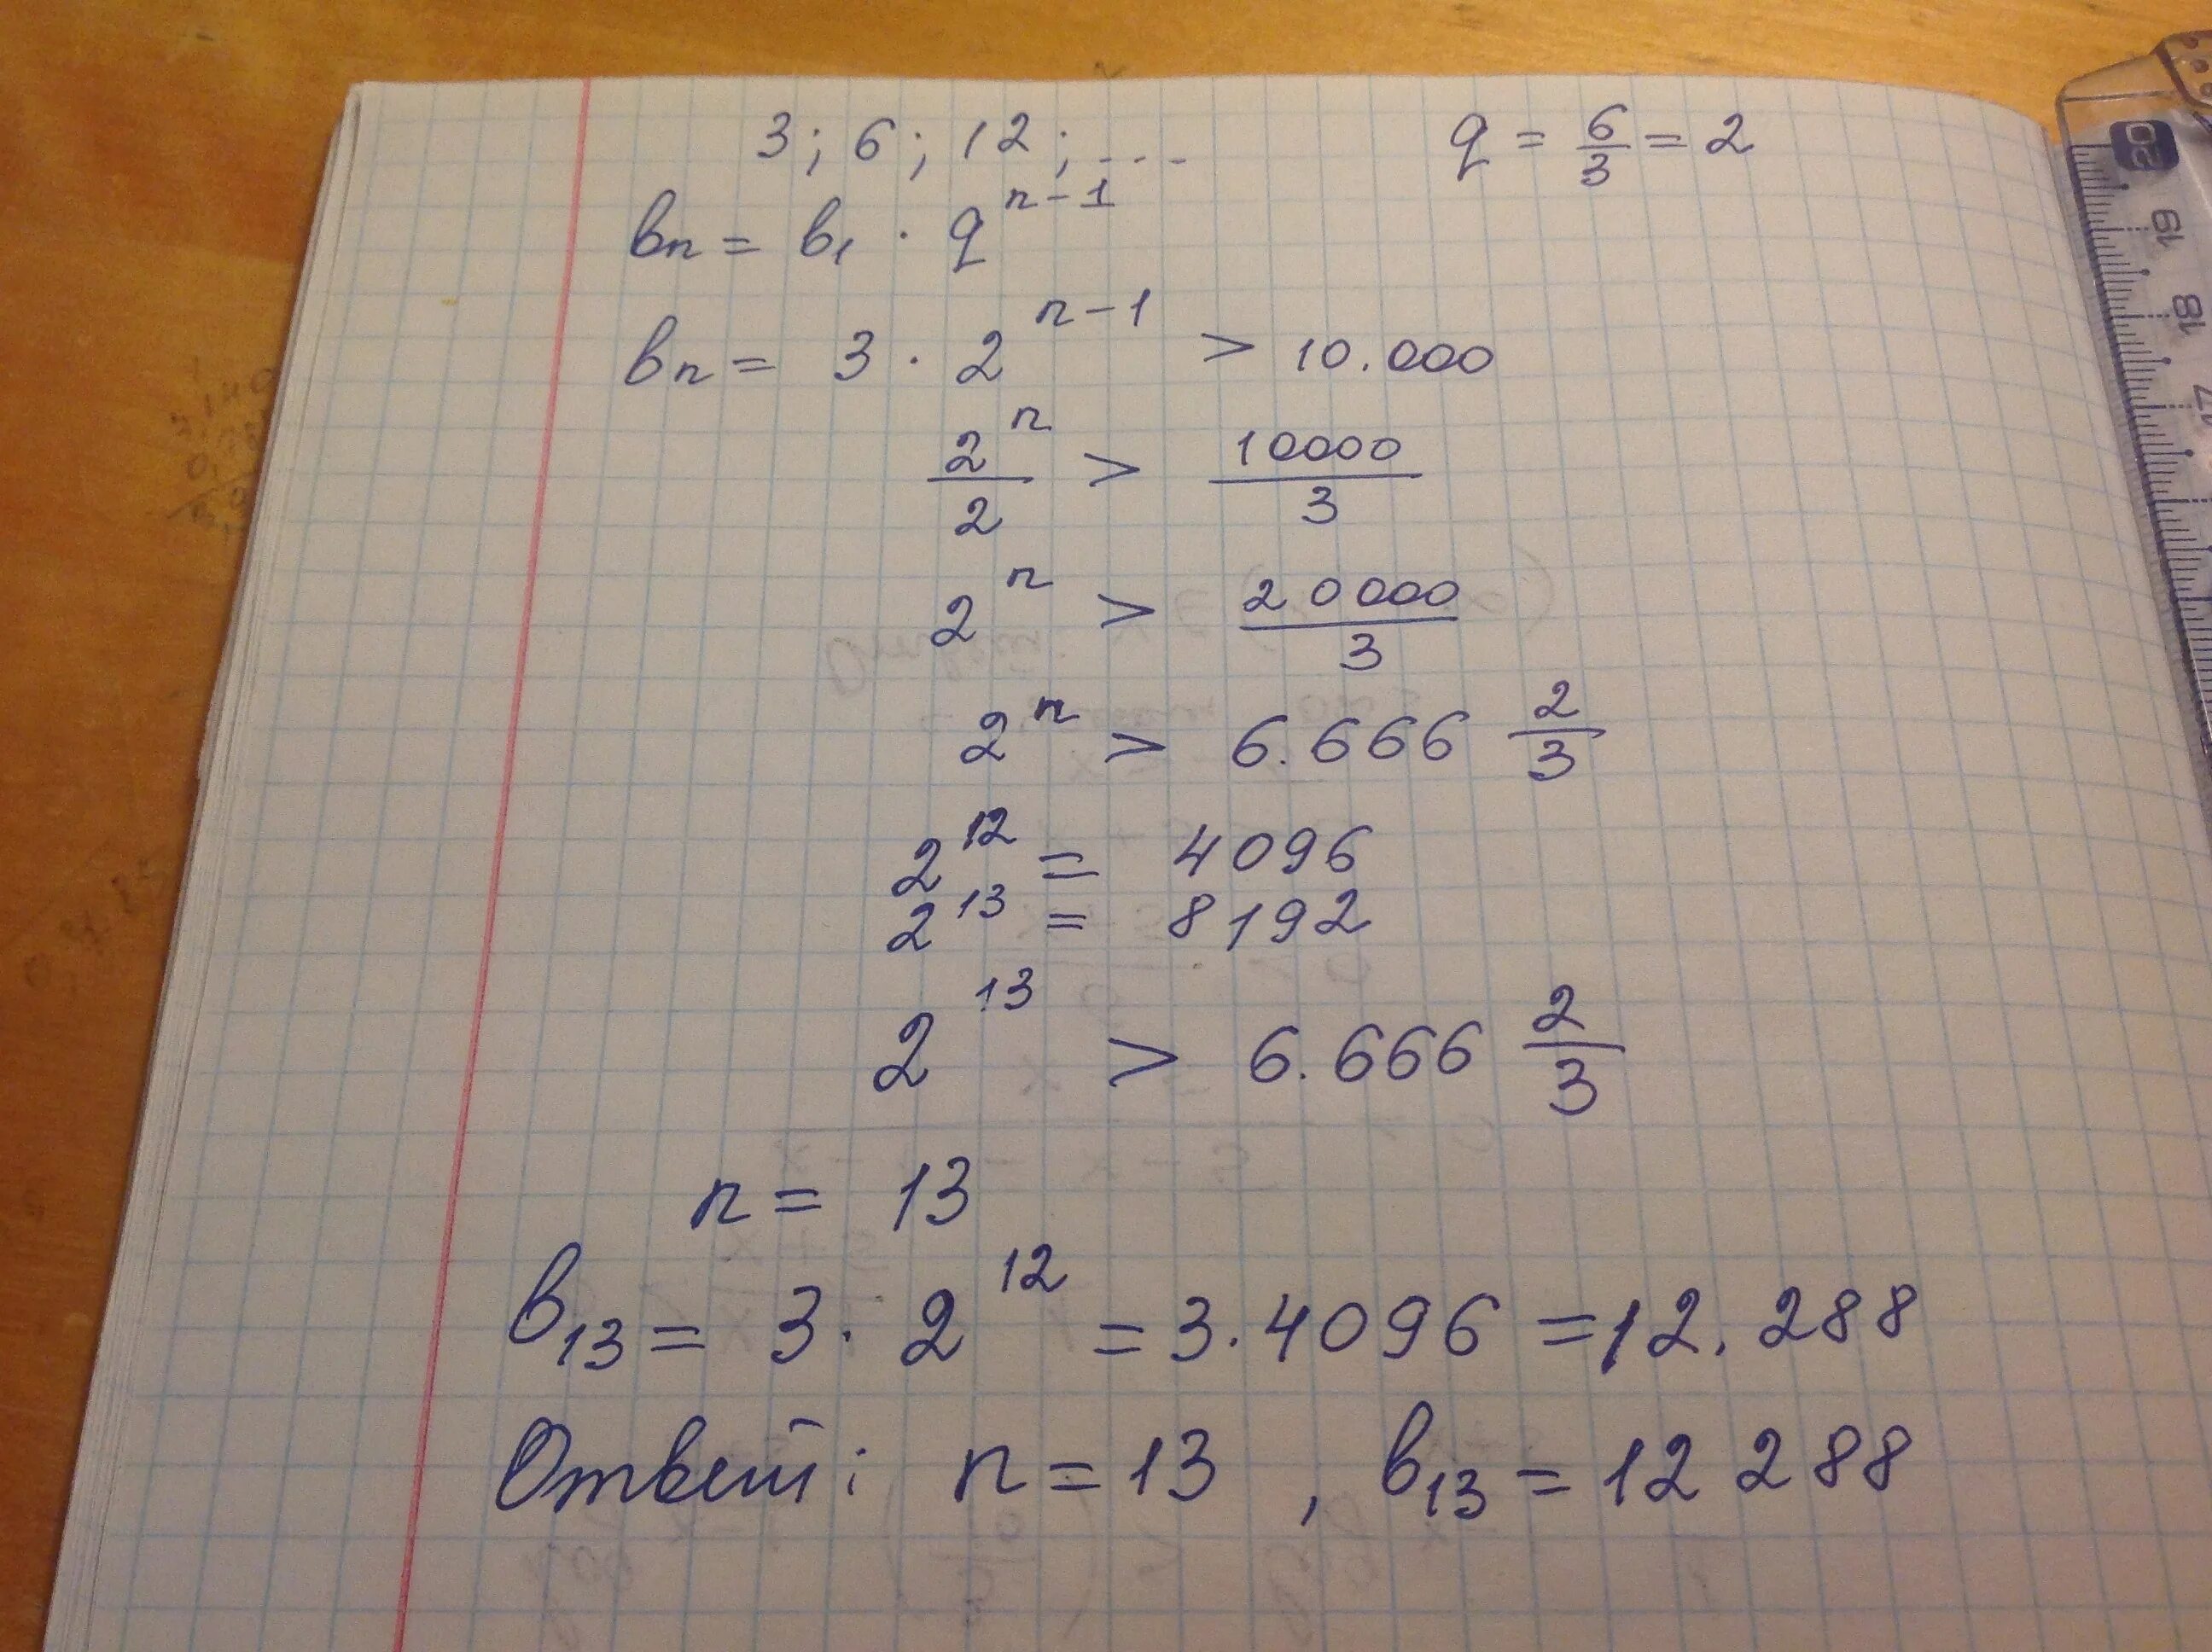 3; 6; 12; ... q = 6/3 = 2
bn = b1 · q^n-1
bn = 3 · 2^n-1 > 10.000
2^n/2 > 10000/3
2^n > 20000/3
2^n > 6.666 2/3
2^12 = 4096
2^13 = 8192
2^13 > 6.666 2/3
n = 13
b13 = 3 · 2^12 = 3 · 4096 = 12.288
Ответ: n = 13, b13 = 12 288
20
19
18
17